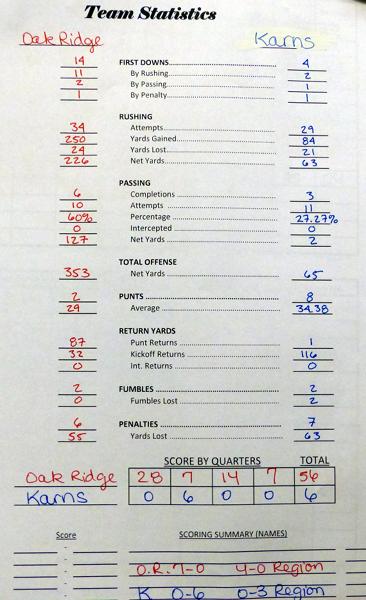 Team Statistics
Oak Ridge Karns
14 FIRST DOWNS 4
11 By Rushing 2
2 By Passing 1
1 By Penalty 1
RUSHING
34 Attempts 29
250 Yards Gained 84
24 Yards Lost 21
226 Net Yards 63
PASSING
6 Completions 3
10 Attempts 11
60% Percentage 27.27%
0 Intercepted 0
127 Net Yards 2
TOTAL OFFENSE
353 Net Yards 65
2 PUNTS 8
29 Average 34.38
RETURN YARDS
87 Punt Returns 1
32 Kickoff Returns 116
0 Int. Returns 0
2 FUMBLES 2
0 Fumbles Lost 2
6 PENALTIES 7
55 Yards Lost 63
SCORE BY QUARTERS TOTAL
Oak Ridge 28 7 14 7 56
Karns 0 6 0 0 6
Score SCORING SUMMARY (NAMES)
O.R. 7-0 4-0 Region
K 0-6 0-3 Region